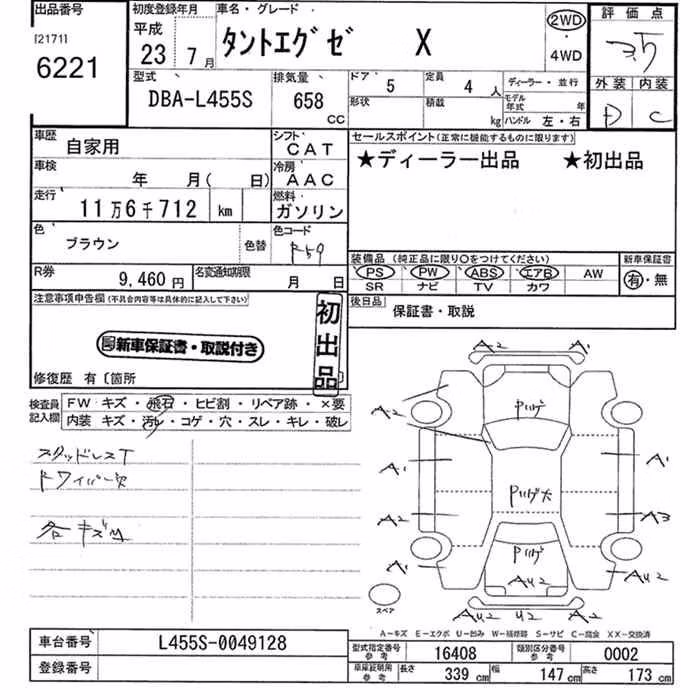 出品番号
[2171]
6221
初度登録年月
平成
23年 7月
車名・グレード
タントエグゼ X
2WD
・
4WD
評価点
3.5
外装 内装
D C
型式
DBA-L455S
排気量
658
CC
ドア
5
定員
4人
形状
積載
kg
ディーラー・並行
モデル年式 年
ハンドル 左・右
車歴
自家用
シフト
CAT
車検
年 月( 日)
冷房
AAC
走行
11万6千712 km
燃料
ガソリン
色
ブラウン
色替
色コード
R59
R券
9,460円
名変通知期限
月 日
セールスポイント(正常に機能するものに限ります)
★ディーラー出品 ★初出品
装備品(純正品に限り○をつけてください)
PS PW ABS エアB AW
SR ナビ TV カワ
新車保証書
有・無
後日品
保証書・取説
注意事項申告欄(不具合内容等は具体的に記入して下さい)
新車保証書・取説付き
初出品
修復歴 有〔箇所
検査員記入欄
FW キズ・飛石・ヒビ割・リペア跡・×要
内装 キズ・汚レ・コゲ・穴・スレ・キレ・破レ
スタッドレスT
Rワイパー欠
各キズU
A2 A1
A2
Pハゲ
A1 A1
Pハゲ大
A2 A3
Pハゲ
A1 AU2 AU2
A2 U2 A2
スペア
A−キズ E−エクボ U−凹み W−補修跡 S−サビ C−腐食 XX−交換済
車台番号
L455S-0049128
登録番号
型式指定番号
参考
16408
類別区分番号
参考
0002
車庫証明用
参考
長さ 339cm 幅 147cm 高さ 173cm